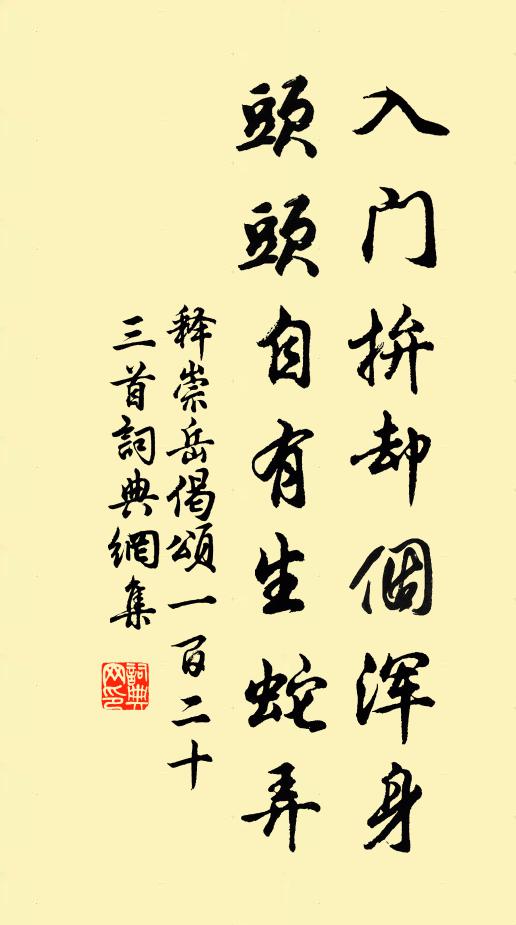 入门拚却個浑身
頭頭自有生蛇弄
释崇岳偈頌一百二十
三首詞典網集
詞典网印